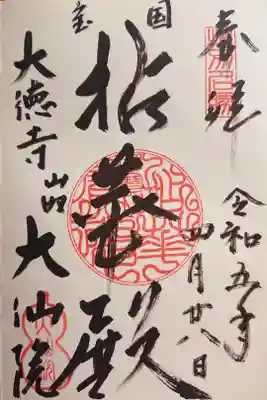 奉拝
令和五年
四月廿八日
国宝
拈華殿
大徳寺山内大仙院